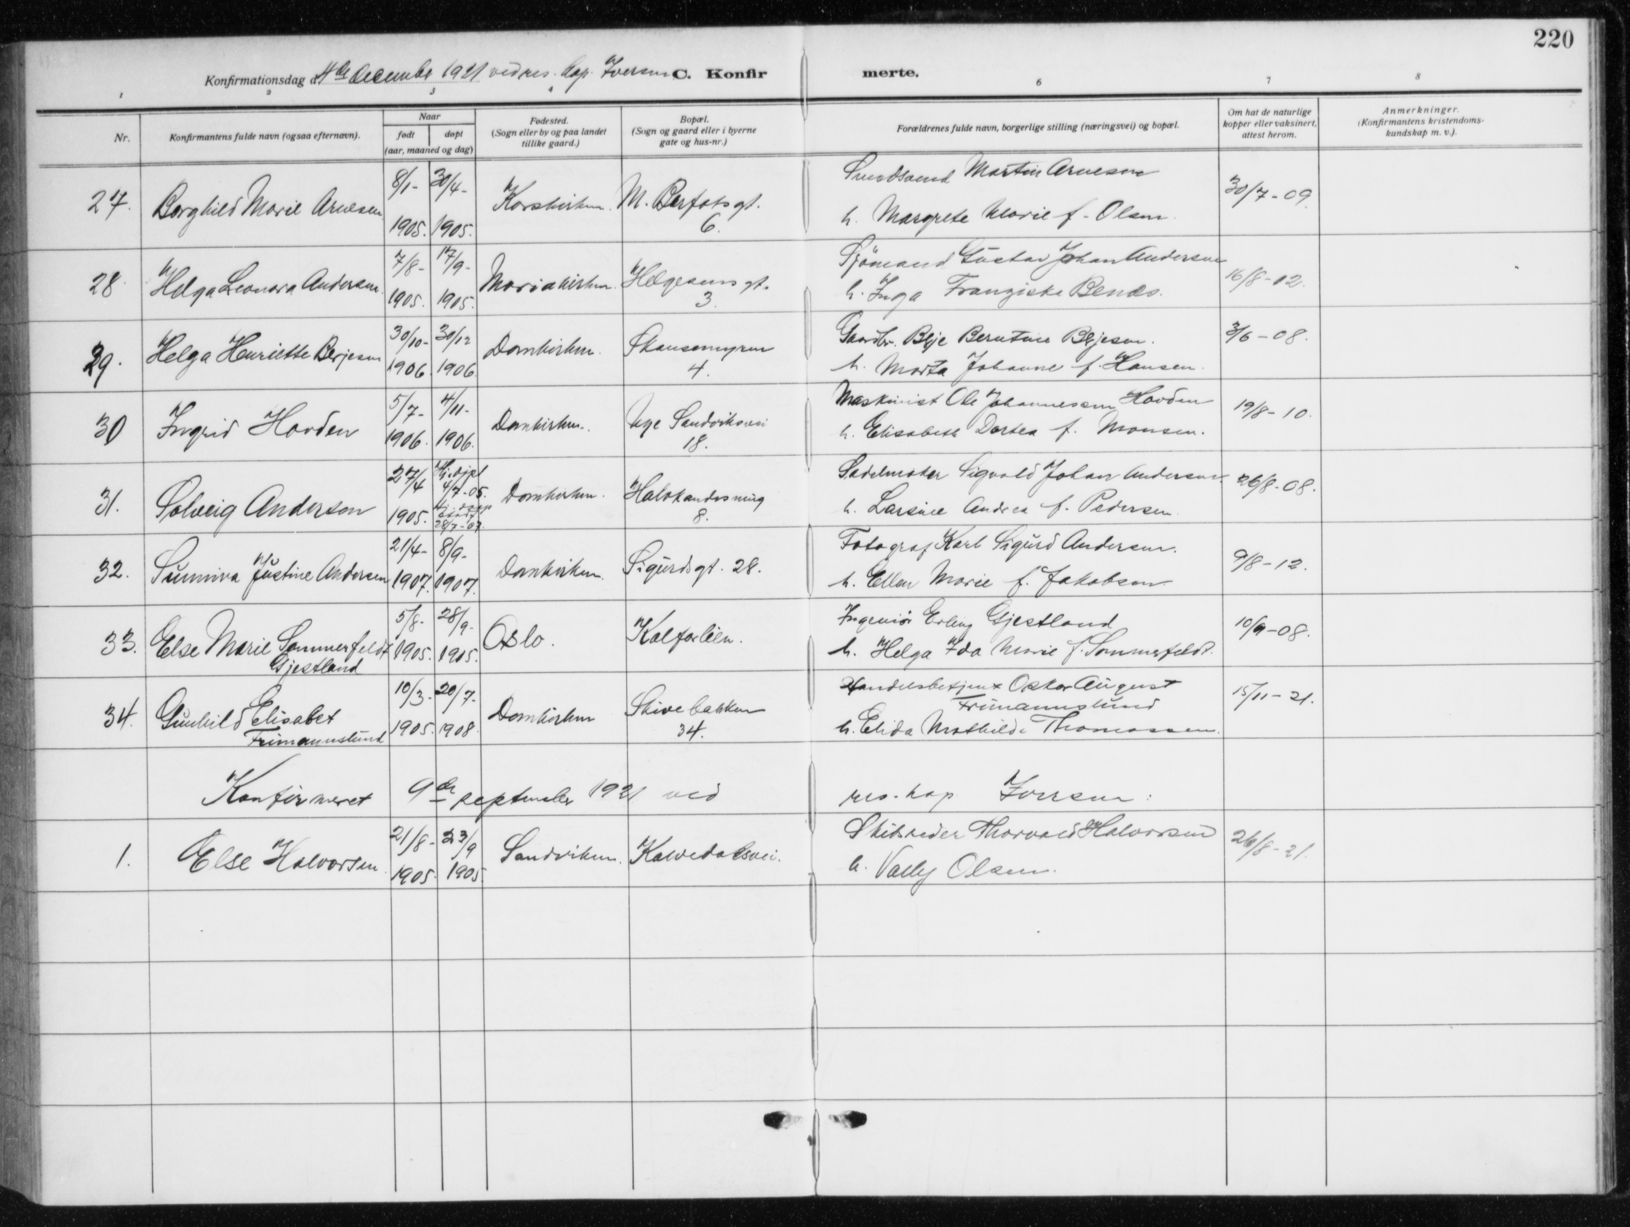 220
Konfirmationsdag d. 4de december 1921 ved res. kap. Iversen C. Konfirmerte.
1 2 3 4 6 7 8
Nr.
Konfirmantens fulde navn (ogsaa efternavn).
Naar
født døpt
(aar, maaned og dag)
Fødested.
(Sogn eller by og paa landet
tillike gaard.)
Bopæl.
(Sogn og gaard eller i byerne
gate og hus-nr.)
Forældrenes fulde navn, borgerlige stilling (næringsvei) og bopæl.
Om hat de naturlige
kopper eller vaksinert,
attest herom.
Anmerkninger.
(Konfirmantens kristendoms-
kundskap m. v.).
27. Borghild Marie Arnesen 8/1- 1905. 30/4- 1905. Korskirken. 6. Martin Arnesen
h. Margrete Marie f. Olsen. 30/7-09.
28 Helga Leonora Andersen 7/8- 1905. 17/9- 1905. Mariakirken. Helgesensgt. 3. Sjömand Gustav Johan Andersen
h. Inga Franziska 16/8-02.
29. Helga Henriette 30/10- 1906. 30/12 1906 Domkirken. Skansemyren 4.
h. Marta Johanne f. Hansen. 3/6-08.
30 Ingrid Hovden 5/7- 1906. 4/11- 1906. Domkirken. Nye Sandviksvei 18. Maskinist Ole Johannessen Hovden
h. Elisabeth Dortea f. Monsen. 19/8-10.
31. Solveig Anderson 27/4 1905. Hj.døpt 4/7-05. 28/7-07 Domkirken. 8. Sadelmaker Sigvald Johan Andersen
h. Larsine Andrea f. Pedersen. 26/8-08.
32. Sunniva Justine Andersen 21/4- 1907. 8/9- 1907. Domkirken. Sigurdsgt. 28. Fotograf Karl Sigurd Andersen.
h. Ellen Marie f. Jakobsen 9/8-12.
33. Else Marie Sommerfeldt
Gjestland 5/8- 1905. 28/9- 1905. Oslo. Kalfarlien. Ingeniör Erling Gjestland
h. Helga Ida Marie f. Sommerfeldt. 10/9-08.
34. Gunhild Elisabet
Frimannslund 10/3- 1905. 20/7- 1908. Domkirken Skivebakken 34. Handelsbetjent Oskar August
Frimannslund
h. Elida Mathilde Thomassen. 15/11-21.
Konfirmeret 9de september 1921 ved res. kap Iversen:
1. Else Halvorsen 21/8- 1905. 23/9 1905. Sandviken. Kalvedalsvei. Skibsreder Thorvald Halvorsen
h. Vally Olsen. 26/8-21.